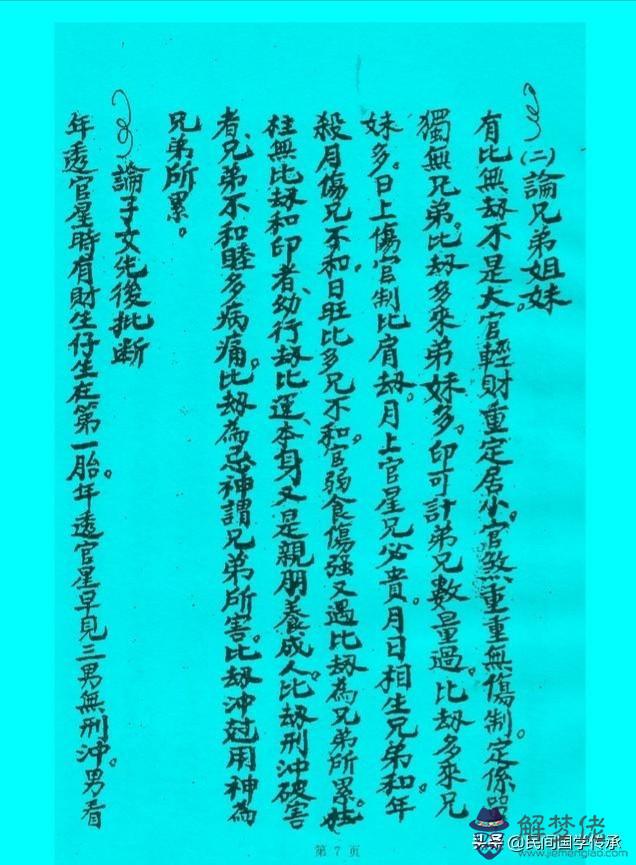 (二)論兄弟姐妹
有比無劫不是大。官輕財重定居小。官煞重重無傷制。定係
獨無兄弟。比劫多來弟妹多。印可計弟兄數量過。比劫多乘兄
妹多。日上傷官制比肩劫。月上官星兄必貴。月日相生兄弟和。年
殺月傷兄不和。日旺比多兄不和。官弱食傷强又遇比劫為兄弟所累。
柱無比劫和印者、幼行劫比運、本身又是親朋養成人。比劫刑沖破害
者、兄弟不和睦多病痛。比劫為忌神謂兄弟所害。比劫沖尅用神為
兄弟所累。
論子女先後批断
年透官星時有財生仔生在第一胎。年透官星早見三男無刑沖。男看
第 7 页
解梦佬
www.jiemenglao.com
头条 @民间国学传承